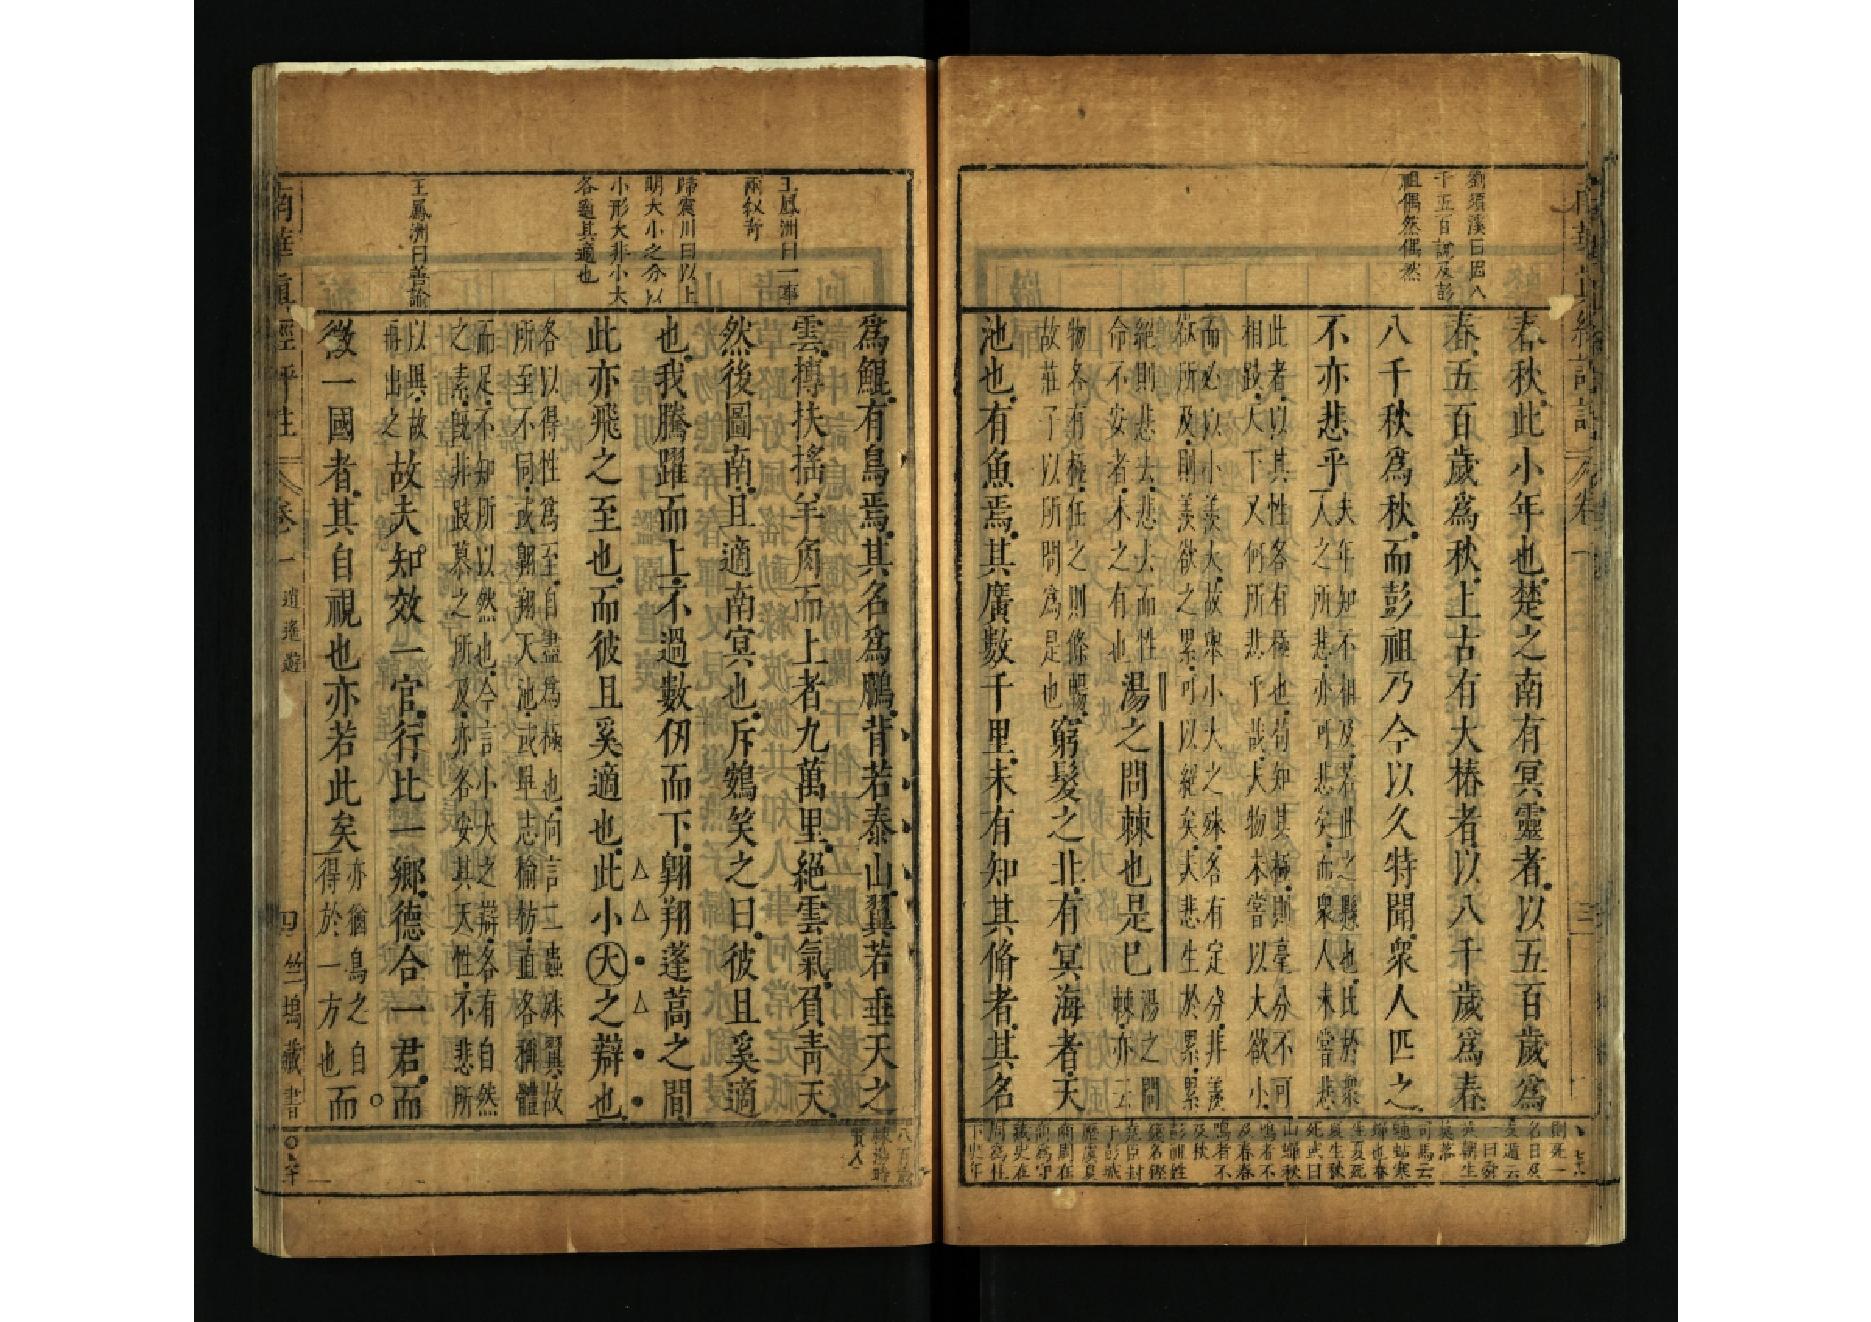 劉須溪曰因八
千五百說及彭
祖偶然偶然
春秋此小年也楚之南有冥靈者以五百歲爲
春五百歲爲秋上古有大椿者以八千歲爲春
八千秋爲秋而彭祖乃今以久特聞衆人匹之
不亦悲乎
夫年知不相及若此之懸也比於衆
人之所悲亦可悲矣而衆人未嘗悲
此者以其性各有極也苟知其極則毫分不可
相跂天下又何所悲乎哉夫物未嘗以大欲小
而必以小羨大故舉小大之殊各有定分非羨
欲所及則羨欲之累可以絕矣夫悲生於累累
絕則悲去悲去而性
命不安者未之有也
湯之問棘也是巳
湯之問
棘亦云
物各有極任之則條暢
故莊子以所問爲是也
窮髮之北有冥海者天
池也有魚焉其廣數千里未有知其脩者其名
王鳳洲曰一事
兩叙奇
歸震川曰以上
明大小之分以
小形大非小大
各適其適也
王鳳洲曰善諭
爲鯤有鳥焉其名爲鵬背若泰山翼若垂天之
雲摶扶搖羊角而上者九萬里絕雲氣負青天
然後圖南且適南冥也斥鴳笑之曰彼且奚適
也我騰躍而上不過數仞而下翺翔蓬蒿之間
此亦飛之至也而彼且奚適也此小大之辯也
各以得性爲至自盡爲極也向言二蟲殊翼故
所至不同或翺翔天池或畢志榆枋直各稱體
而足不知所以然也今言小大之辯各有自然
之素旣非跂慕之所及亦各安其天性不悲所
以異故
再出之
故夫知效一官行比一鄉德合一君而
徵一國者其自視也亦若此矣
亦猶鳥之自
得於一方也
而
南華眞經評註
卷一
逍遙遊
四
竺塢藏書